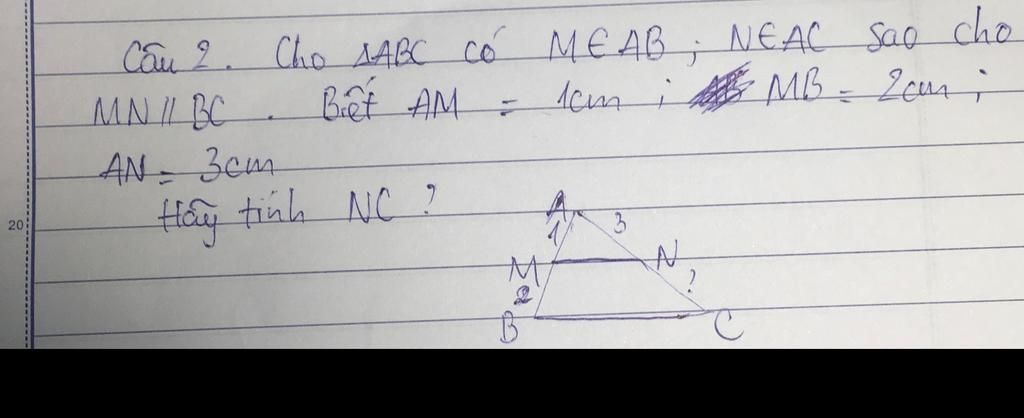 Câu 2. Cho ΔABC có M∈AB; N∈AC sao cho
MN // BC. Biết AM = 1cm; MB = 2cm;
AN = 3cm
Hãy tính NC?
20
A
1 3
M N
2 ?
B C